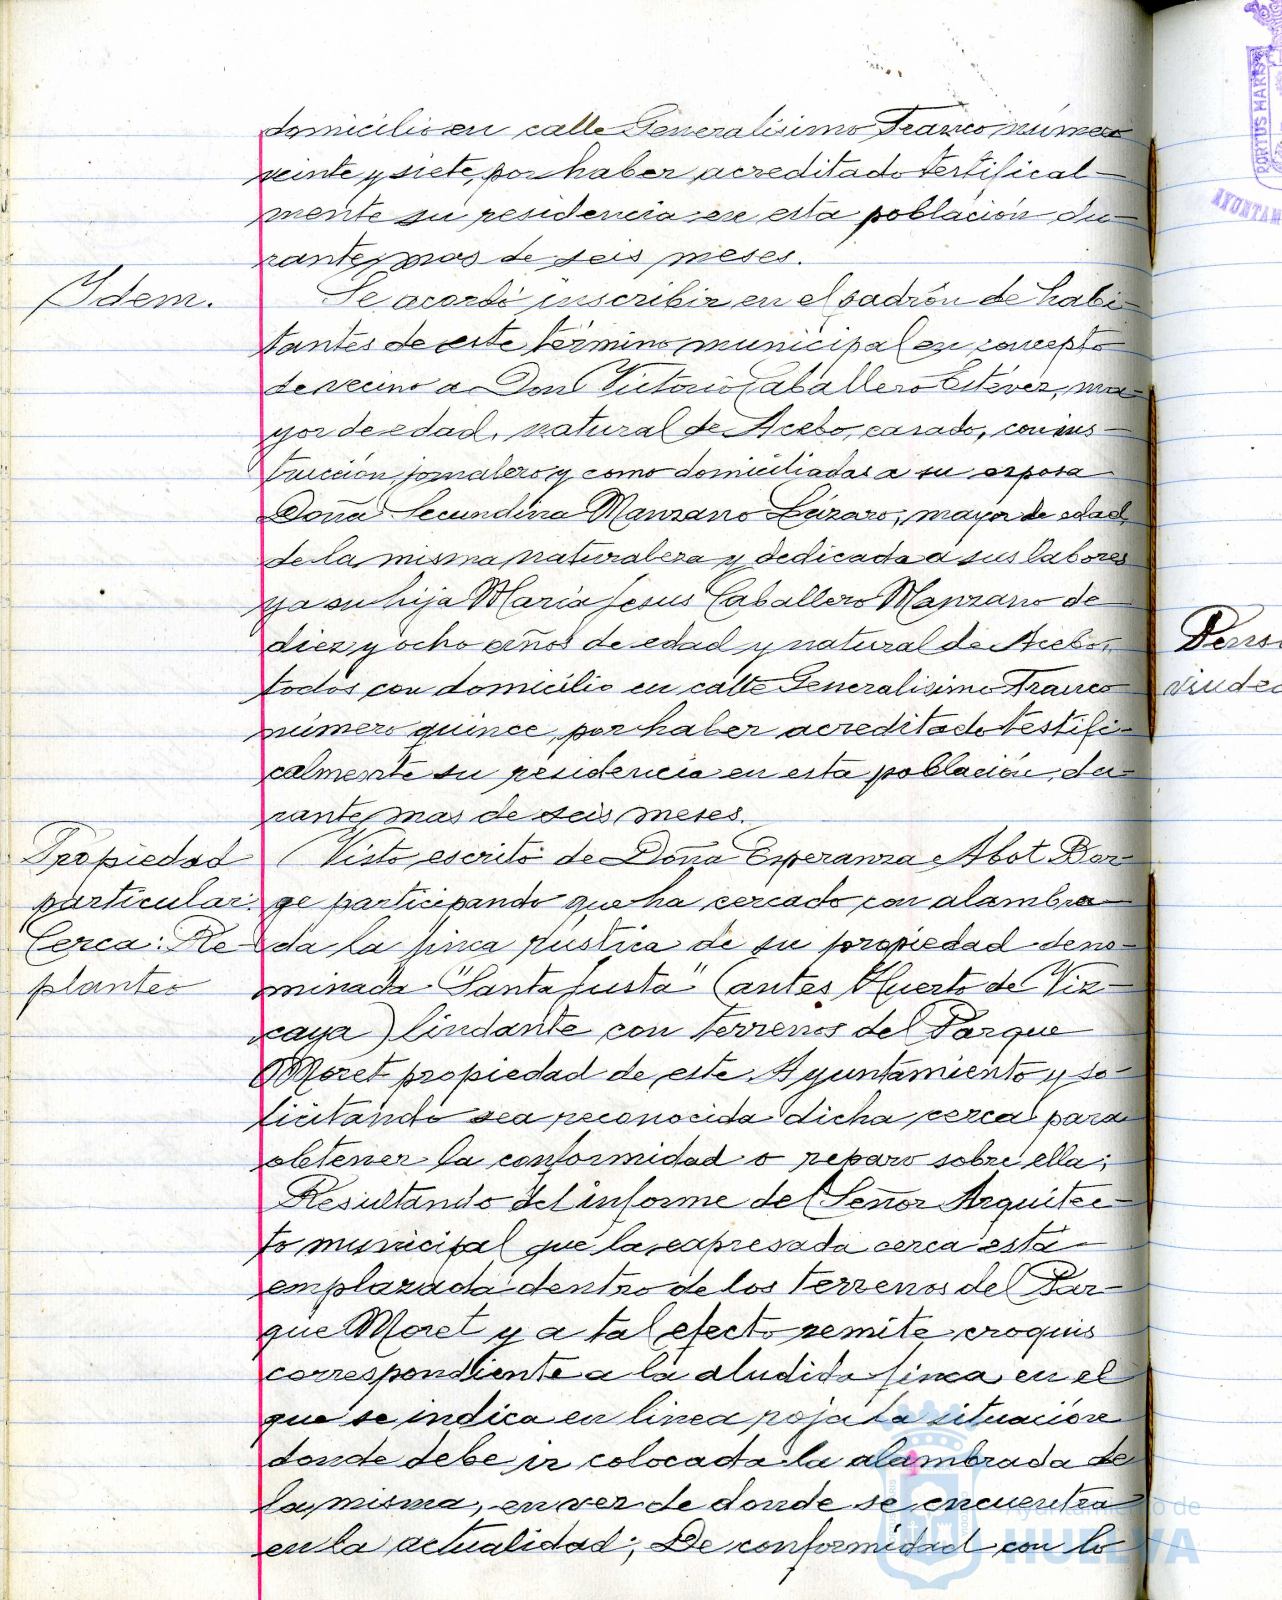 domicilio en calle Generalisimo Franco número
veinte y siete, por haber acreditado testifical-
mente su residencia en esta población du-
rante mas de seis meses.
Idem.
Se acordó inscribir en el padrón de habi-
tantes de este término municipal en concepto
de vecino a Don Victorio Caballero Estévez, ma-
yor de edad, natural de Acebo, casado, con ins-
trucción jornalero y como domiciliadas a su esposa
Doña Secundina Manzano Lázaro, mayor de edad,
de la misma naturaleza y dedicada a sus labores
y a su hija María Jesus Caballero Manzano de
diez y ocho años de edad y natural de Acebo,
todos con domicilio en calle Generalisimo Franco
número quince, por haber acreditado testifi-
calmente su residencia en esta población, du-
rante mas de seis meses.
Propiedad
particular.
Cerca: Re-
planteo
Visto escrito de Doña Esperanza Abot Bor-
ge participando que ha cercado con alambra-
da la finca rústica de su propiedad deno-
minada "Santa Justa" (antes Huerto de Viz-
caya) lindante con terrenos del Parque
Moret propiedad de este Ayuntamiento y so-
licitando sea reconocida dicha cerca para
obtener la conformidad o reparo sobre ella;
Resultando del informe del Señor Arquitec-
to municipal que la expresada cerca está
emplazada dentro de los terrenos del Par-
que Moret y a tal efecto remite croquis
correspondiente a la aludida finca en el
que se indica en linea roja la situación
donde debe ir colocada la alambrada de
la misma, en vez de donde se encuentra
en la actualidad; De conformidad con lo
PORTUS MARIS
AYUNTAM
Pens
viuded
Ayuntamiento de
HUELVA